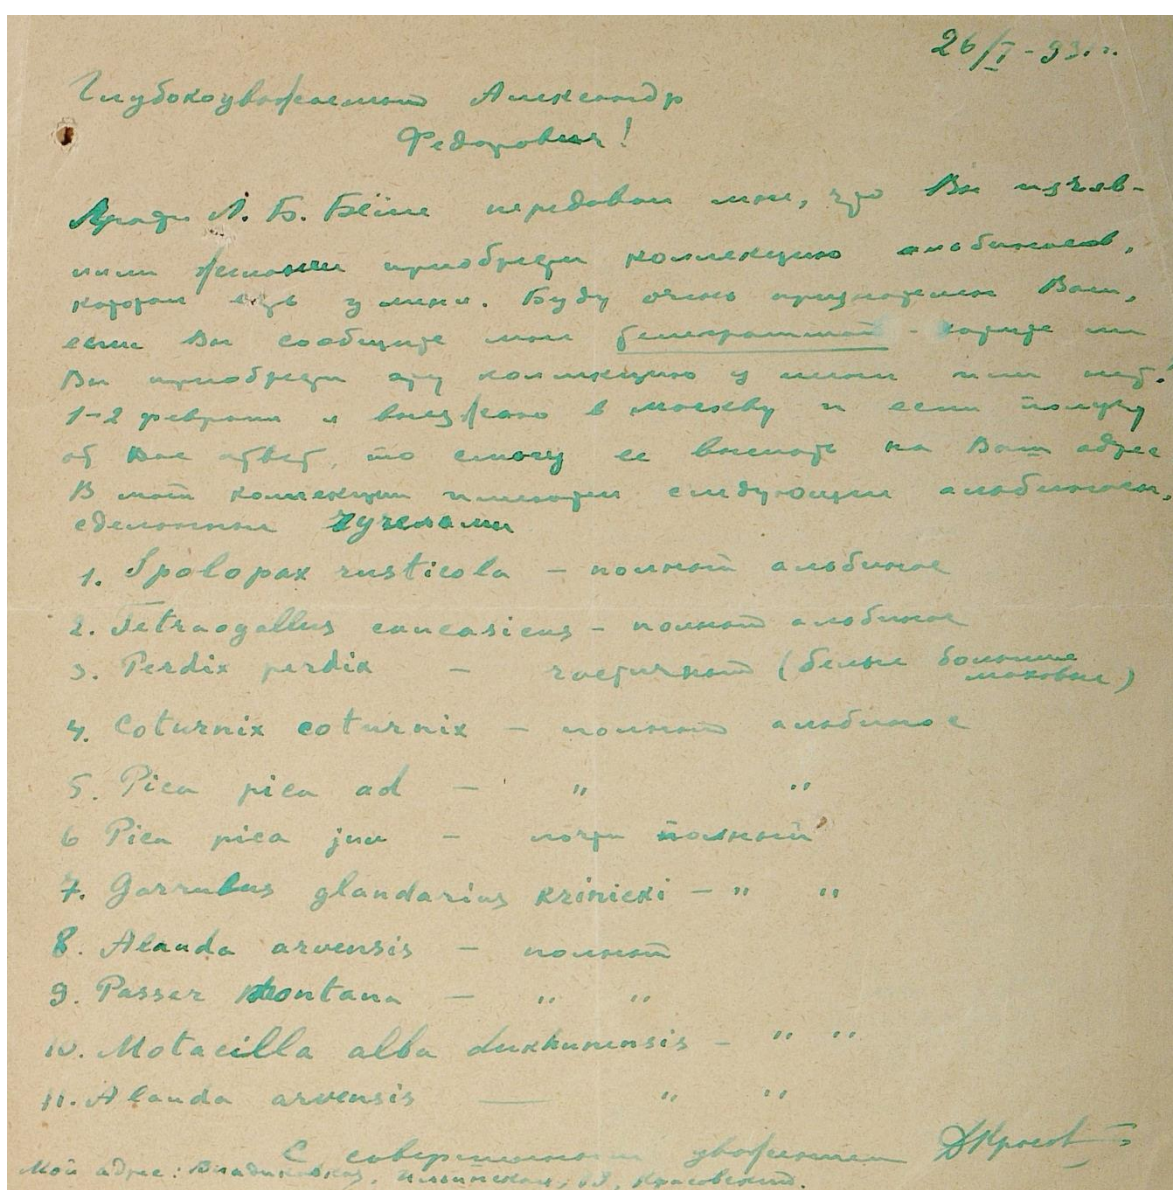 26/I-33 г.
Глубокоуважаемый Александр
Федорович!
Л. Б. Бёме передавал мне, что Вы изъяв-
или желание приобрести коллекцию альбиносов,
которая есть у меня. Буду очень признателен Вам,
если Вы сообщите мне телеграммой - хотите ли
Вы приобрести эту коллекцию у меня или нет.
1-2 февраля я выезжаю в Москву и если получу
от Вас ответ, то смогу ее выслать на Ваш адрес
В моей коллекции имеются следующие альбиносы,
сделанные чучелами
1. Spolopax rusticola - полный альбинос
2. Tetraogallus caucasicus - полный альбинос
3. Perdix perdix - частичный (белые большие
маховые)
4. Coturnix coturnix - полный альбинос
5. Pica pica ad - " "
6 Pica pica juv - почти полный
7. Garrulus glandarius krinicki - " "
8. Alauda arvensis - полный
9. Passer montana - " "
10. Motacilla alba dukhunensis - " "
11. Alauda arvensis — " "
С совершенным уважением ДКрасов
Мой адрес: Владикавказ, Ильинская, Красовский.